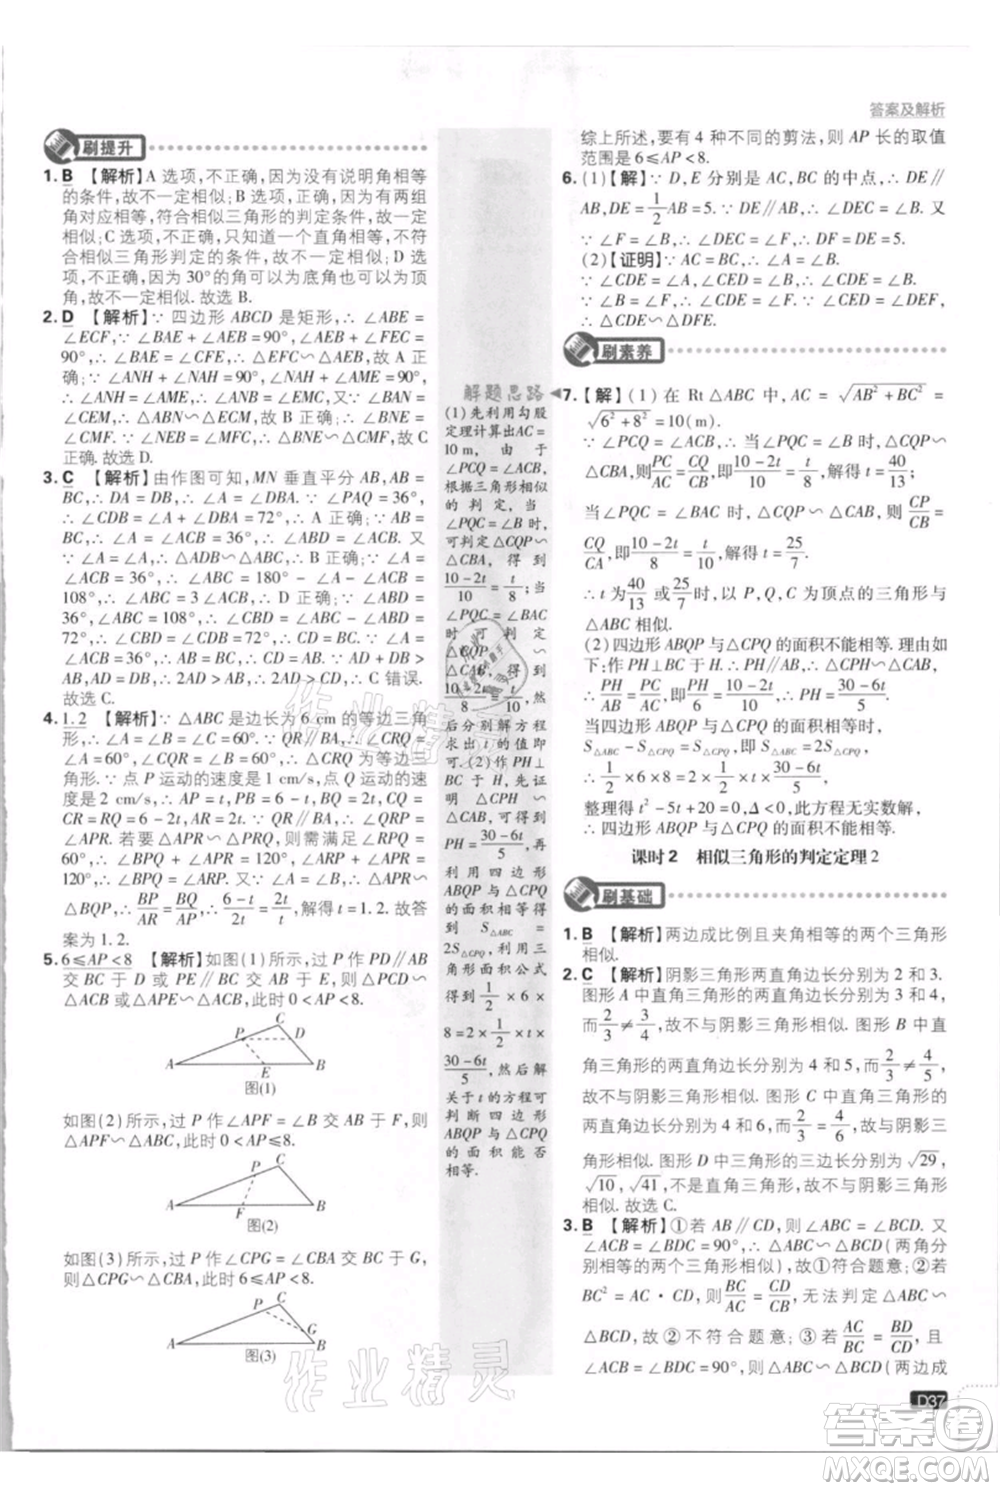 答案及解析
刷提升
1. B 【解析】A 选项,不正确,因为没有说明角相等
的条件,故不一定相似;B 选项,正确,因为有两组
角对应相等,符合相似三角形的判定条件,故一定
相似;C 选项,不正确,只知道一个直角相等,不符
合相似三角形判定的条件,故不一定相似;D 选
项,不正确,因为 30°的角可以为底角也可以为顶
角,故不一定相似.故选 B.
2. D 【解析】∵ 四边形 ABCD 是矩形,∴ ∠ABE =
∠ECF,∵ ∠BAE + ∠AEB = 90°,∠AEB + ∠FEC =
90°,∴ ∠BAE = ∠CFE,∴ △EFC∽△ABE,故 A
正确;∵ ∠ANH = ∠AME,∠HAN = ∠EAM,
∴ △ANH∽△AME,故 B 正确;∵ ∠BAN =
∠CEM,∴ △ABN∽△ECM,故 C 正确;∵ ∠ABN =
∠CEM,∴ △ABN∽△ECM,∴ ∠BNE =
∠CMF.故选 D.
3. C 【解析】由作图可知,MN 垂直平分 AB,
∴ DA = DB,∴ ∠DBA = ∠A = 36°,
∴ ∠CDB = ∠A + ∠DBA = 72°,∴ A 正确;∵ AB =
AC,∴ ∠ABC = ∠ACB = 72°,∴ ∠DBA = ∠ACB = 36°,
∠A = ∠A,∴ △ADB∽△ABC,∴ B 正确;∵ ∠A =
∠ACB = 36°,∴ ∠ABC = 180° - ∠A - ∠ACB =
108°,∴ ∠ABC = 108°,∴ ∠CBD = ∠ABC - ∠DBA =
72°,∴ ∠CBD = ∠CDB = 72°,∴ D 正确;
∴ CD = CB = AB,∵ AD + DB > AB,
∴ 2AD > AB,∴ 2AD > CD,∴ C 错误.
故选 C.
4. 1.2 【解析】∵ △ABC 是边长为 6 cm 的等边三角
形,∴ ∠B = ∠C = 60°.∵ QR∥BA,∴ ∠QRC =
∠A = 60°,∠CQR = ∠B = 60°,∴ △CQR 为等边三
角形.∵ 点 P 运动的速度是 1 cm/s,点 Q 运动的速
度是 2 cm/s,∴ AP = t,BQ = 2t,
CR = RQ = CQ = 6 - 2t.∵ QR∥BA,∴ ∠QRP =
∠APR.若要 △APR∽△PRQ,则需满足 ∠RPQ =
∠A = 60°.∵ ∠BPQ + ∠APR = ∠APR + ∠ARP =
120°,∴ ∠BPQ = ∠ARP.又∵ ∠A = ∠B,∴ △ARP∽
△BQP,∴ BP/AR = BQ/AP,∴ (6-t)/2t = 2t/t,解得 t = 1.2.故答
案为 1.2.
5. 6≤AP<8 【解析】如图(1)所示,过 P 作 PD∥AB
交 BC 于 D 或 PE∥BC 交 AB 于 E,则 △PCD∽
△ACB 或 △APE∽△ACB,此时 0<AP<8.
P C D A E B
图(1)
如图(2)所示,过 P 作 ∠APF = ∠B 交 AB 于 F,则
△APF∽△ABC,此时 0<AP≤8.
P C A F B
图(2)
如图(3)所示,过 P 作 ∠CPG = ∠CBA 交 BC 于 G,
则 △CPG∽△CBA,此时 6≤AP<8.
P C G A B
图(3)
解题思路
(1)先利用勾股
定理计算出AC =
10 m,由于
∠PCQ = ∠ACB,
根据三角形相似
的判定,当
∠PQC = ∠B 时,
可判定△CQP∽
△CBA,得到
(10-2t)/10 = t/8;当
∠PQC = ∠BAC
时可判定
△CQP∽△CAB,得到
(10-2t)/8 = t/10,然
后分别解方程
求出 t 的值即
可.(2)作 PH⊥
BC 于 H,先证
明 △CPH∽
△CAB,可得到
PH = (30-6t)/5,再
利用四边形
ABQP 与△CPQ
的面积相等得
到 S△ABC =
2S△CPQ,利用三
角形面积公式
得到 1/2 × 6 ×
8 = 2 × 1/2 × t ×
(30-6t)/5,然后根据
关于 t 的方程可
判断四边形
ABQP 与△CPQ
的面积能否
相等.
综上所述,要有 4 种不同的剪法,则 AP 长的取值
范围是 6≤AP<8.
6. (1)【解】∵ D,E 分别是 AC,BC 的中点,∴ DE∥
AB,DE = 1/2 AB = 5.∵ DE∥AB,∴ ∠DEC = ∠B.又
∵ ∠F = ∠B,∴ ∠DEC = ∠F,∴ DF = DE = 5.
(2)【证明】∵ AC = BC,∴ ∠A = ∠B.
∵ ∠CDE = ∠A,∠CED = ∠B,∴ ∠CDE = ∠B.
∵ ∠B = ∠F,∴ ∠CDE = ∠F.∵ ∠CED = ∠DEF,
∴ △CDE∽△DFE.
刷素养
7. 【解】(1) 在 Rt△ABC 中,AC = √(AB² + BC²) =
√(6² + 8²) = 10(m).
∵ ∠PCQ = ∠ACB,∴ 当∠PQC = ∠B 时,△CQP∽
△CBA,则 PC/AC = CQ/BC,即 (10-2t)/10 = t/8,解得 t = 40/13;
当 ∠PQC = ∠BAC 时,△CQP∽△CAB,则 CP/CB =
CQ/CA,即 (10-2t)/8 = t/10,解得 t = 25/7.
∴ t 为 40/13 或 25/7 时,以点 C,P,Q 为顶点的三角形与
△ABC 相似.
(2)四边形 ABQP 与△CPQ 的面积不能相等.理由如
下:作 PH⊥BC 于 H,∴ PH∥AB,∴ △CPH∽△CAB,
∴ PH/AB = PC/AC,即 PH/6 = (10-2t)/10,∴ PH = (30-6t)/5.
当四边形 ABQP 与△CPQ 的面积相等时,
S△ABC - S△CPQ = S△CPQ,即 S△ABC = 2S△CPQ,
∴ 1/2 × 6 × 8 = 2 × 1/2 × t × (30-6t)/5,
整理得 t² - 5t + 20 = 0,Δ<0,此方程无实数解,
∴ 四边形 ABQP 与△CPQ 的面积不能相等.
课时2 相似三角形的判定定理2
刷基础
1. B 【解析】两边成比例且夹角相等的两个三角形
相似.
2. C 【解析】阴影三角形两直角边长分别为 2 和 3.
图形 A 中直角三角形的两直角边长分别为 3 和 4,
而 2/3 ≠ 3/4,故不与阴影三角形相似.图形 B 中直
角三角形的两直角边长分别为 4 和 5,而 2/3 ≠ 4/5,
故不与阴影三角形相似.图形 C 中直角三角形的
两直角边长分别为 4 和 6,而 2/3 = 4/6,故与阴影三
角形相似.图形 D 中三角形的三边长分别为 √29,
√10,√41,不是直角三角形,故不与阴影三角形
相似.故选 C.
3. B 【解析】①若 AB∥CD,则∠B = ∠BCD.又
∵ ∠A = ∠CBD = 90°,∴ △ABC∽△BCD(两角分
别相等的两个三角形相似),故①符合题意;②若
BC² = AC·CD,则 BC/AC = CD/BC,无法判定 △ABC∽
△BCD,故②不符合题意;③若 AB/BC = BC/CD,且
∠ACB = ∠CBD = 90°,则△ABC∽△BCD(两边成
D37
作业精灵
作业精灵
答案卷
MXQE.COM